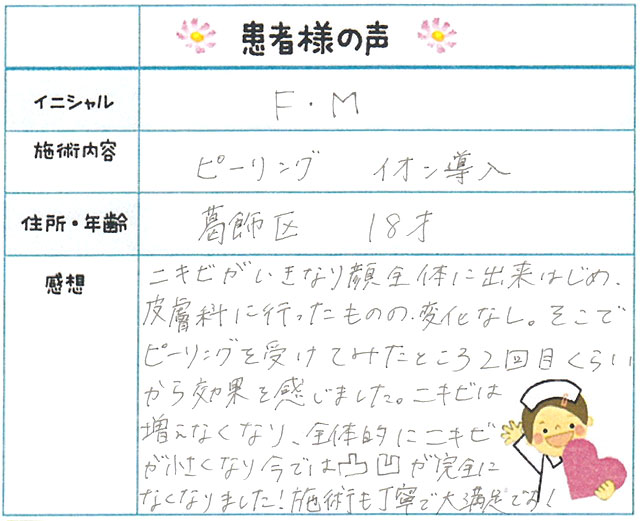 患者様の声
イニシャル F・M
施術内容 ピーリング イオン導入
住所・年齢 葛飾区 18才
感想
ニキビがいきなり顔全体に出来はじめ、
皮膚科に行ったものの、変化なし。そこで
ピーリングを受けてみたところ2回目くらい
から効果を感じました。ニキビは
増えなくなり、全体的にニキビ
が小さくなり今では凸凹が完全に
なくなりました！施術も丁寧で大満足です！